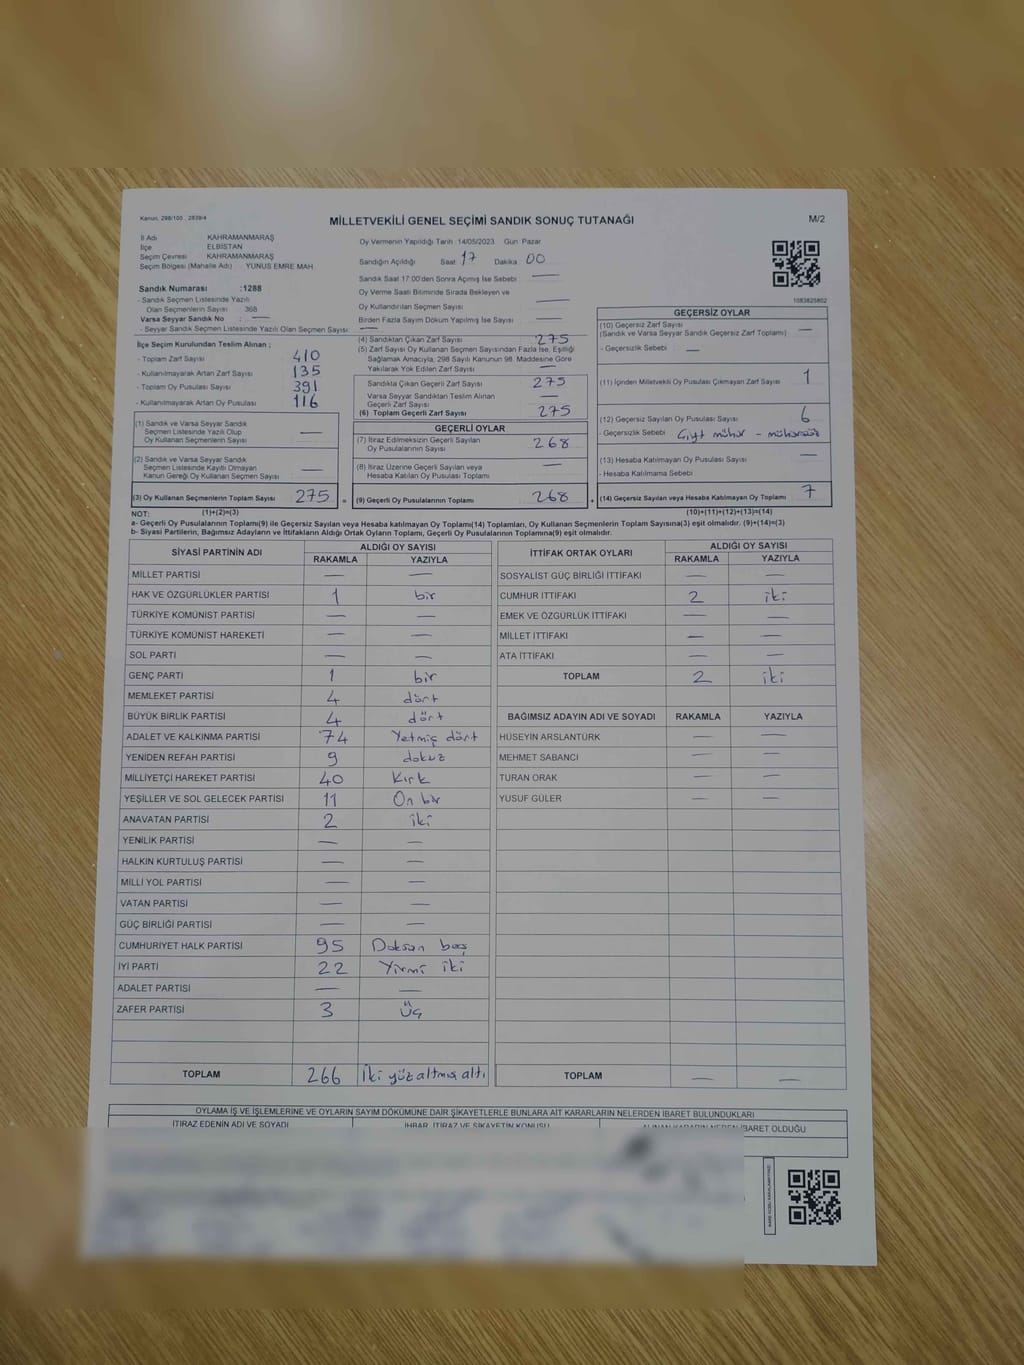 Kanun, 298/105 , 2839/4
MİLLETVEKİLİ GENEL SEÇİMİ SANDIK SONUÇ TUTANAĞI
M/2
İl Adı KAHRAMANMARAŞ
İlçe ELBİSTAN
Seçim Çevresi KAHRAMANMARAŞ
Seçim Bölgesi (Mahalle Adı) YUNUS EMRE MAH
Sandık Numarası :1288
- Sandık Seçmen Listesinde Yazılı
Olan Seçmenlerin Sayısı : 368
Varsa Seyyar Sandık No : —
- Seyyar Sandık Seçmen Listesinde Yazılı Olan Seçmen Sayısı: —
İlçe Seçim Kurulundan Teslim Alınan ;
- Toplam Zarf Sayısı 410
- Kullanılmayarak Artan Zarf Sayısı 135
- Toplam Oy Pusulası Sayısı 391
- Kullanılmayarak Artan Oy Pusulası 116
(1) Sandık ve Varsa Seyyar Sandık
Seçmen Listesinde Yazılı Olup
Oy Kullanan Seçmenlerin Sayısı —
(2) Sandık ve Varsa Seyyar Sandık
Seçmen Listesinde Kayıtlı Olmayan
Kanun Gereği Oy Kullanan Seçmen Sayısı —
(3) Oy Kullanan Seçmenlerin Toplam Sayısı 275 =
Oy Vermenin Yapıldığı Tarih :14/05/2023 Gün :Pazar
Sandığın Açıldığı Saat 17 Dakika 00
Sandık Saat 17:00'den Sonra Açılmış İse Sebebi —
Oy Verme Saati Bitiminde Sırada Bekleyen ve
Oy Kullandırılan Seçmen Sayısı —
Birden Fazla Sayım Döküm Yapılmış İse Sayısı —
(4) Sandıktan Çıkan Zarf Sayısı 275
(5) Zarf Sayısı Oy Kullanan Seçmen Sayısından Fazla İse, Eşitliği
Sağlamak Amacıyla, 298 Sayılı Kanunun 98. Maddesine Göre
Yakılarak Yok Edilen Zarf Sayısı —
Sandıkta Çıkan Geçerli Zarf Sayısı 275
Varsa Seyyar Sandıktan Teslim Alınan
Geçerli Zarf Sayısı —
(6) Toplam Geçerli Zarf Sayısı 275
GEÇERLİ OYLAR
(7) İtiraz Edilmeksizin Geçerli Sayılan
Oy Pusulalarının Sayısı 268
(8) İtiraz Üzerine Geçerli Sayılan veya
Hesaba Katılan Oy Pusulası Toplamı —
(9) Geçerli Oy Pusulalarının Toplamı 268 +
1083825802
GEÇERSİZ OYLAR
(10) Geçersiz Zarf Sayısı
(Sandık ve Varsa Seyyar Sandık Geçersiz Zarf Toplamı) —
- Geçersizlik Sebebi —
(11) İçinden Milletvekili Oy Pusulası Çıkmayan Zarf Sayısı 1
(12) Geçersiz Sayılan Oy Pusulası Sayısı 6
- Geçersizlik Sebebi Çift mühür - mühürsüz
(13) Hesaba Katılmayan Oy Pusulası Sayısı —
- Hesaba Katılmama Sebebi
(14) Geçersiz Sayılan veya Hesaba Katılmayan Oy Toplamı 7
NOT: (1)+(2)=(3) (10)+(11)+(12)+(13)=(14)
a- Geçerli Oy Pusulalarının Toplamı(9) ile Geçersiz Sayılan veya Hesaba katılmayan Oy Toplamı(14) Toplamları, Oy Kullanan Seçmenlerin Toplam Sayısına(3) eşit olmalıdır. (9)+(14)=(3)
b- Siyasi Partilerin, Bağımsız Adayların ve İttifakların Aldığı Ortak Oyların Toplamı, Geçerli Oy Pusulalarının Toplamına(9) eşit olmalıdır.
SİYASİ PARTİNİN ADI ALDIĞI OY SAYISI
RAKAMLA YAZIYLA
MİLLET PARTİSİ — —
HAK VE ÖZGÜRLÜKLER PARTİSİ 1 bir
TÜRKİYE KOMÜNİST PARTİSİ — —
TÜRKİYE KOMÜNİST HAREKETİ — —
SOL PARTİ — —
GENÇ PARTİ 1 bir
MEMLEKET PARTİSİ 4 dört
BÜYÜK BİRLİK PARTİSİ 4 dört
ADALET VE KALKINMA PARTİSİ 74 Yetmiş dört
YENİDEN REFAH PARTİSİ 9 dokuz
MİLLİYETÇİ HAREKET PARTİSİ 40 Kırk
YEŞİLLER VE SOL GELECEK PARTİSİ 11 On bir
ANAVATAN PARTİSİ 2 iki
YENİLİK PARTİSİ — —
HALKIN KURTULUŞ PARTİSİ — —
MİLLİ YOL PARTİSİ — —
VATAN PARTİSİ — —
GÜÇ BİRLİĞİ PARTİSİ — —
CUMHURİYET HALK PARTİSİ 95 Doksan beş
İYİ PARTİ 22 Yirmi iki
ADALET PARTİSİ — —
ZAFER PARTİSİ 3 Üç
TOPLAM 266 İki yüz altmış altı
İTTİFAK ORTAK OYLARI ALDIĞI OY SAYISI
RAKAMLA YAZIYLA
SOSYALİST GÜÇ BİRLİĞİ İTTİFAKI — —
CUMHUR İTTİFAKI 2 iki
EMEK VE ÖZGÜRLÜK İTTİFAKI — —
MİLLET İTTİFAKI — —
ATA İTTİFAKI — —
TOPLAM 2 iki
BAĞIMSIZ ADAYIN ADI VE SOYADI RAKAMLA YAZIYLA
HÜSEYİN ARSLANTÜRK — —
MEHMET SABANCI — —
TURAN ORAK — —
YUSUF GÜLER — —
TOPLAM — —
OYLAMA İŞ VE İŞLEMLERİNE VE OYLARIN SAYIM DÖKÜMÜNE DAİR ŞİKAYETLERLE BUNLARA AİT KARARLARIN NELERDEN İBARET BULUNDUKLARI
İTİRAZ EDENİN ADI VE SOYADI İHBAR, İTİRAZ VE ŞİKAYETİN KONUSU ALINAN KARARIN NEDEN İBARET OLDUĞU